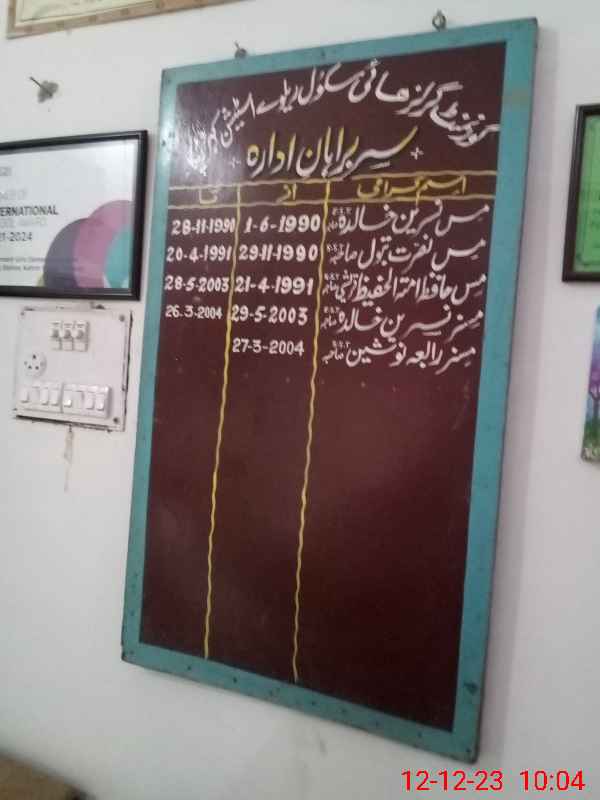 گورنمنٹ گرلز ہائی سکول ریلوے اسٹیشن
سربراہان ادارہ
اسم گرامی از تا
مس نسرین خالدہ صاحبہ 1-6-1990 28-11-1990
مس نصرت بتول صاحبہ 29-11-1990 20-4-1991
مس حافظ امۃ الحفیظ قریشی صاحبہ 21-4-1991 28-5-2003
مسز نسرین خالدہ صاحبہ 29-5-2003 26-3-2004
مسز رابعہ نوشین صاحبہ 27-3-2004
TERNATIONAL
12-12-23 10:04